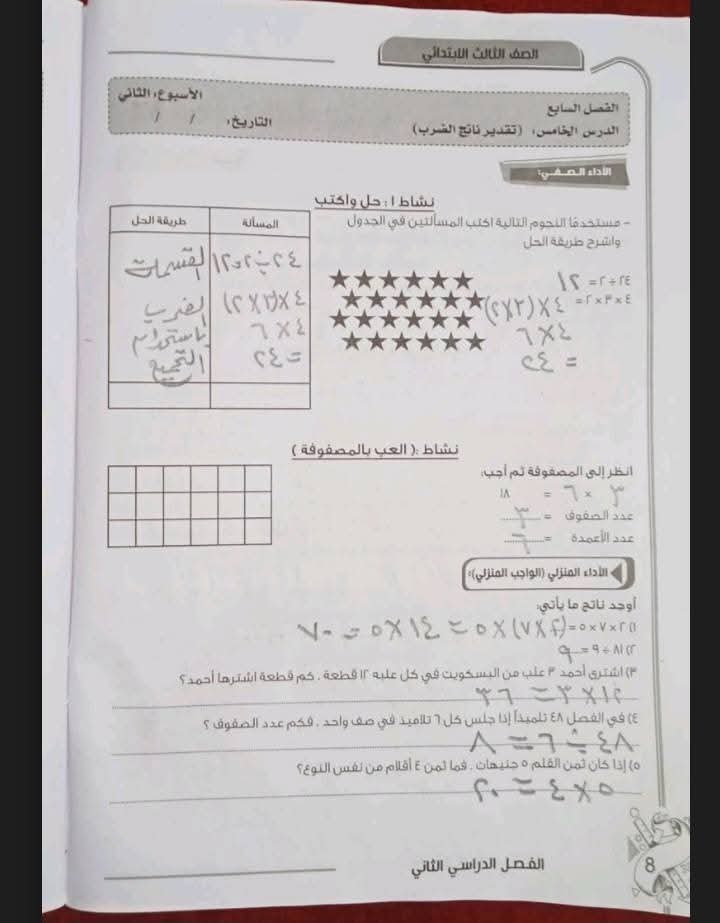 الصف الثالث الابتدائي
الفصل السابع
الأسبوع: الثاني
الدرس الخامس: (تقدير ناتج الضرب)
التاريخ: / /
الأداء الصفي:
نشاط ١: حل واكتب
- مستخدمًا النجوم التالية اكتب المسألتين في الجدول
واشرح طريقة الحل
٢٤ ÷ ٢ = ١٢
٤ × ٣ × ٢ = ٤ × (٣ × ٢)
٤ × ٦
= ٢٤
المسألة
طريقة الحل
٢٤ ÷ ٢ = ١٢
القسمة
٤ × (٣ × ٢)
الضرب
٤ × ٦
باستخدام
= ٢٤
التجميع
نشاط :( العب بالمصفوفة )
انظر إلى المصفوفة ثم أجب:
٣ × ٦ = ١٨
عدد الصفوف = ٣
عدد الأعمدة = ٦
الأداء المنزلي (الواجب المنزلي):
أوجد ناتج ما يأتي:
١) ٢ × ٧ × ٥ = (٢ × ٧) × ٥ = ١٤ × ٥ = ٧٠
٢) ٨١ ÷ ٩ = ٩
٣) اشترى أحمد ٣ علب من البسكويت في كل علبه ١٢ قطعة . كم قطعة اشترها أحمد؟
١٢ × ٣ = ٣٦
٤) في الفصل ٤٨ تلميذاً إذا جلس كل ٦ تلاميذ في صف واحد . فكم عدد الصفوف ؟
٤٨ ÷ ٦ = ٨
٥) إذا كان ثمن القلم ٥ جنيهات . فما ثمن ٤ أقلام من نفس النوع؟
٥ × ٤ = ٢٠
الفصل الدراسي الثاني
8